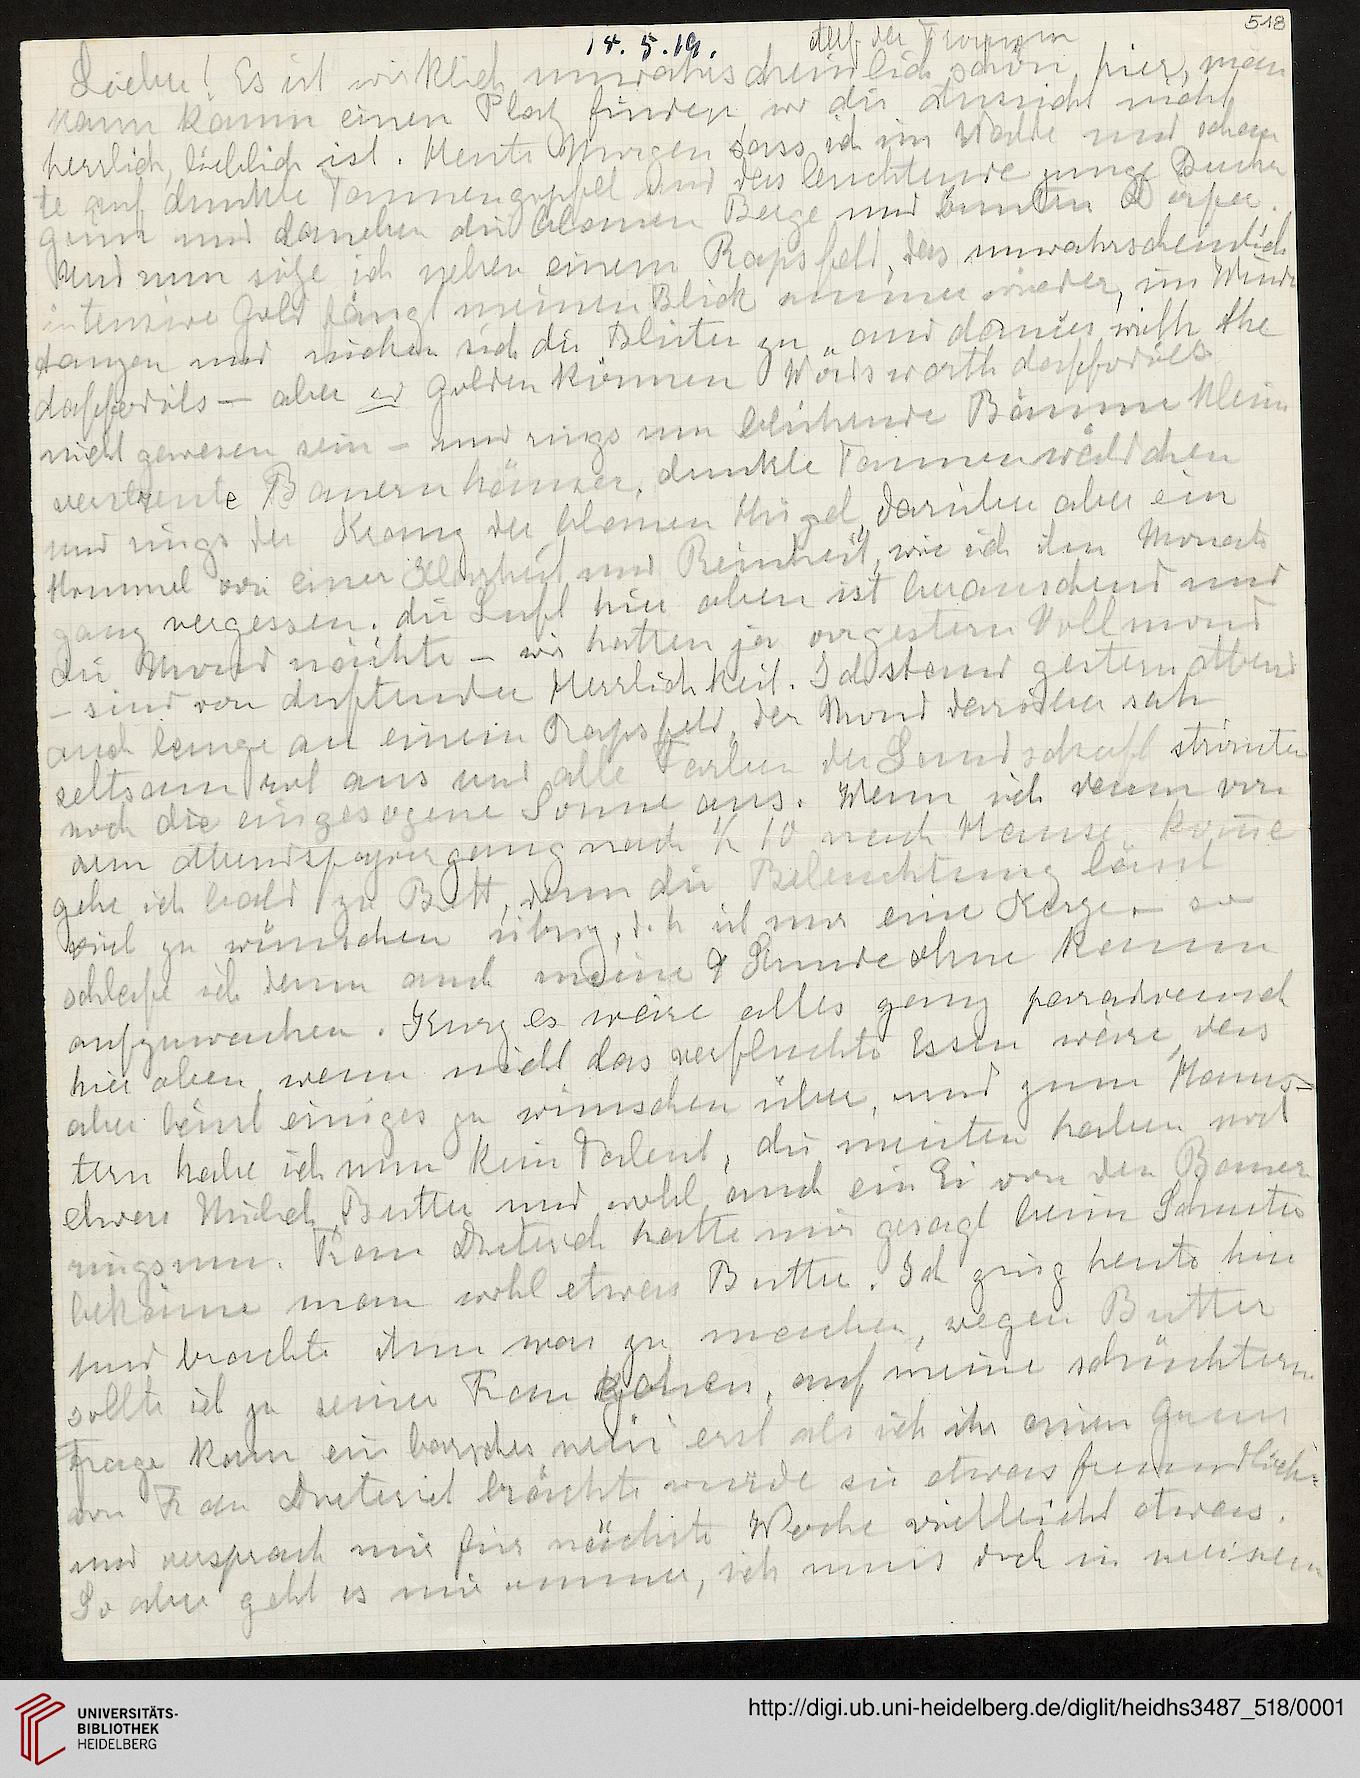 518
14. 5. 19.
auf der
Liebe! Es ist wirklich unwahrscheinlich schön hier, man
kann kaum einen Platz finden, wo die Aussicht nicht
herrlich, lieblich ist. Heute Morgen sass ich im Walde und schau
te auf dunkle Tannengipfel und das leuchtende junge Buchen
grün und daneben die blauen Berge und bunten Dörfer.
Und nun sitze ich neben einem Rapsfeld, das unwahrscheinlich
intensive Gold fängt meinen Blick immer wieder, im Winde
tanzen und nicken sich die Blüten zu „and dances with the
daffodils — aber so golden können Wordsworth daffodils
nicht gewesen sein — und rings um blühende Bäume kleine
verstreute Bauernhäuser, dunkle Tannenwäldchen
und rings der Kranz der blauen Hügel, darüber aber ein
Himmel von einer Klarheit und Reinheit, wie ich ihn Monate
ganz vergessen. die Luft hier oben ist berauschend und
die Mondnächte — wir hatten ja vorgestern Vollmond
— sind von duftender Herrlichkeit. Ich stand gestern Abend
auch lange an einem Rapsfeld, der Mond darüber sah
seltsam rot aus und alle Farben der Landschaft strömten
noch die eingesogene Sonne aus. Wenn ich dann von
dem Abendspaziergang nach ½ 10 nach Hause komme
gehe ich bald zu Bett, denn die Beleuchtung lässt
viel zu wünschen übrig, d. h. ist nur eine Kerze — so
schlafe ich denn auch meine 9 Stunde ohne kaum
aufzuwachen. Kurz es wäre alles ganz paradiesisch
hier oben, wenn nicht das verfluchte Essen wäre, das
aber lässt einiges zu wünschen über, und zum Hams-
tern habe ich nun kein Talent, die meisten haben noch
etwas Milch, Butter und wohl auch ein Ei von den Bauern
ringsum. Frau Dieterich hatte mir gesagt beim Schuster
bekäme man wohl etwas Butter. Ich ging heute hin
und brachte ihm was zu machen, wegen Butter
sollte ich zu seiner Frau gehen, auf meine schüchterne
Frage kam ein barsches nein erst als ich ihr einen Gruss
von Frau Dieterich brächte wurde sie etwas freundlicher
und versprach mir für nächste Woche vielleicht etwas.
So aber geht es mir immer, ich muss doch in meinem
UNIVERSITÄTS-
BIBLIOTHEK
HEIDELBERG
http://digi.ub.uni-heidelberg.de/diglit/heidhs3487_518/0001